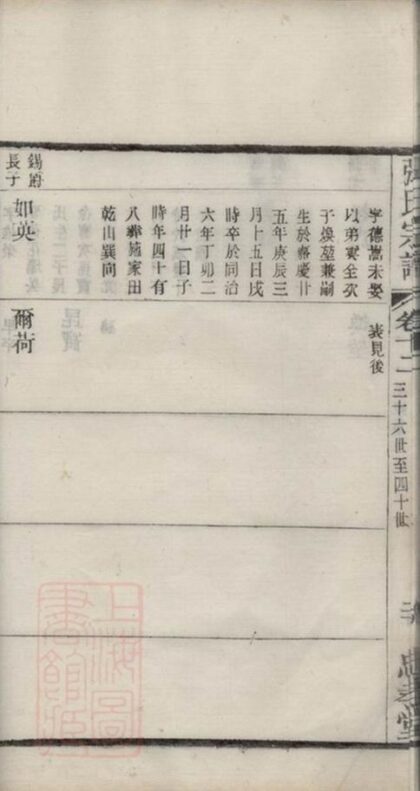 張氏宗譜
卷十二
三十六世至四十世
忠孝堂
字德嵩未娶
以弟寶全次
子煥堃兼嗣
生於嘉慶廿
五年庚辰三
月十五日戌
時卒於同治
六年丁卯二
月廿一日子
時年四十有
八葬施家田
乾山巽向
表見後
錫爵
長子
如英
爾荷
上海圖
書館藏